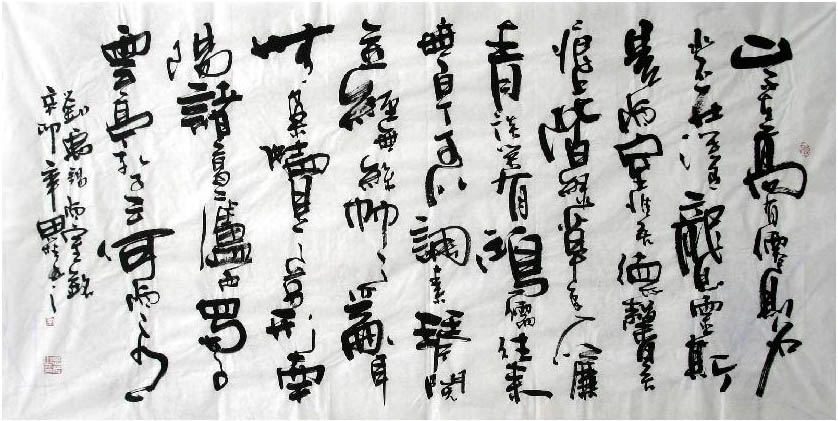 山不在高有僊則名
水不在深有龍則靈斯
是陋室惟吾德馨苔
痕上階綠草色入簾
青談笑有鴻儒往來
無白丁可以調素琴閱
金經無絲竹之亂耳
無案牘之勞形南
陽諸葛廬西蜀子
雲亭孔子云何陋之有
劉禹錫陋室銘
辛卯年